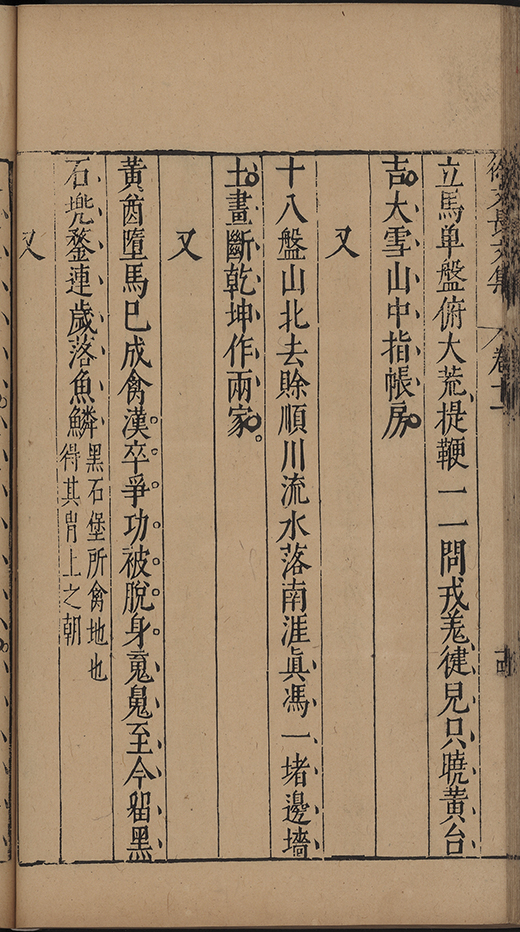 徐文長文集 卷十一
立馬单盤俯大荒提鞭一一問戎羗健兒只曉黃台
吉大雪山中指帳房
又
十八盤山北去賖順川流水落南涯眞馮一堵邊墻
土畫斷乾坤作兩家
又
黃酋墮馬巳成禽漢卒爭功被脫身至今留黑
石兠鍪連歲落魚鱗
黑石堡所禽地也
得其胄上之朝
又